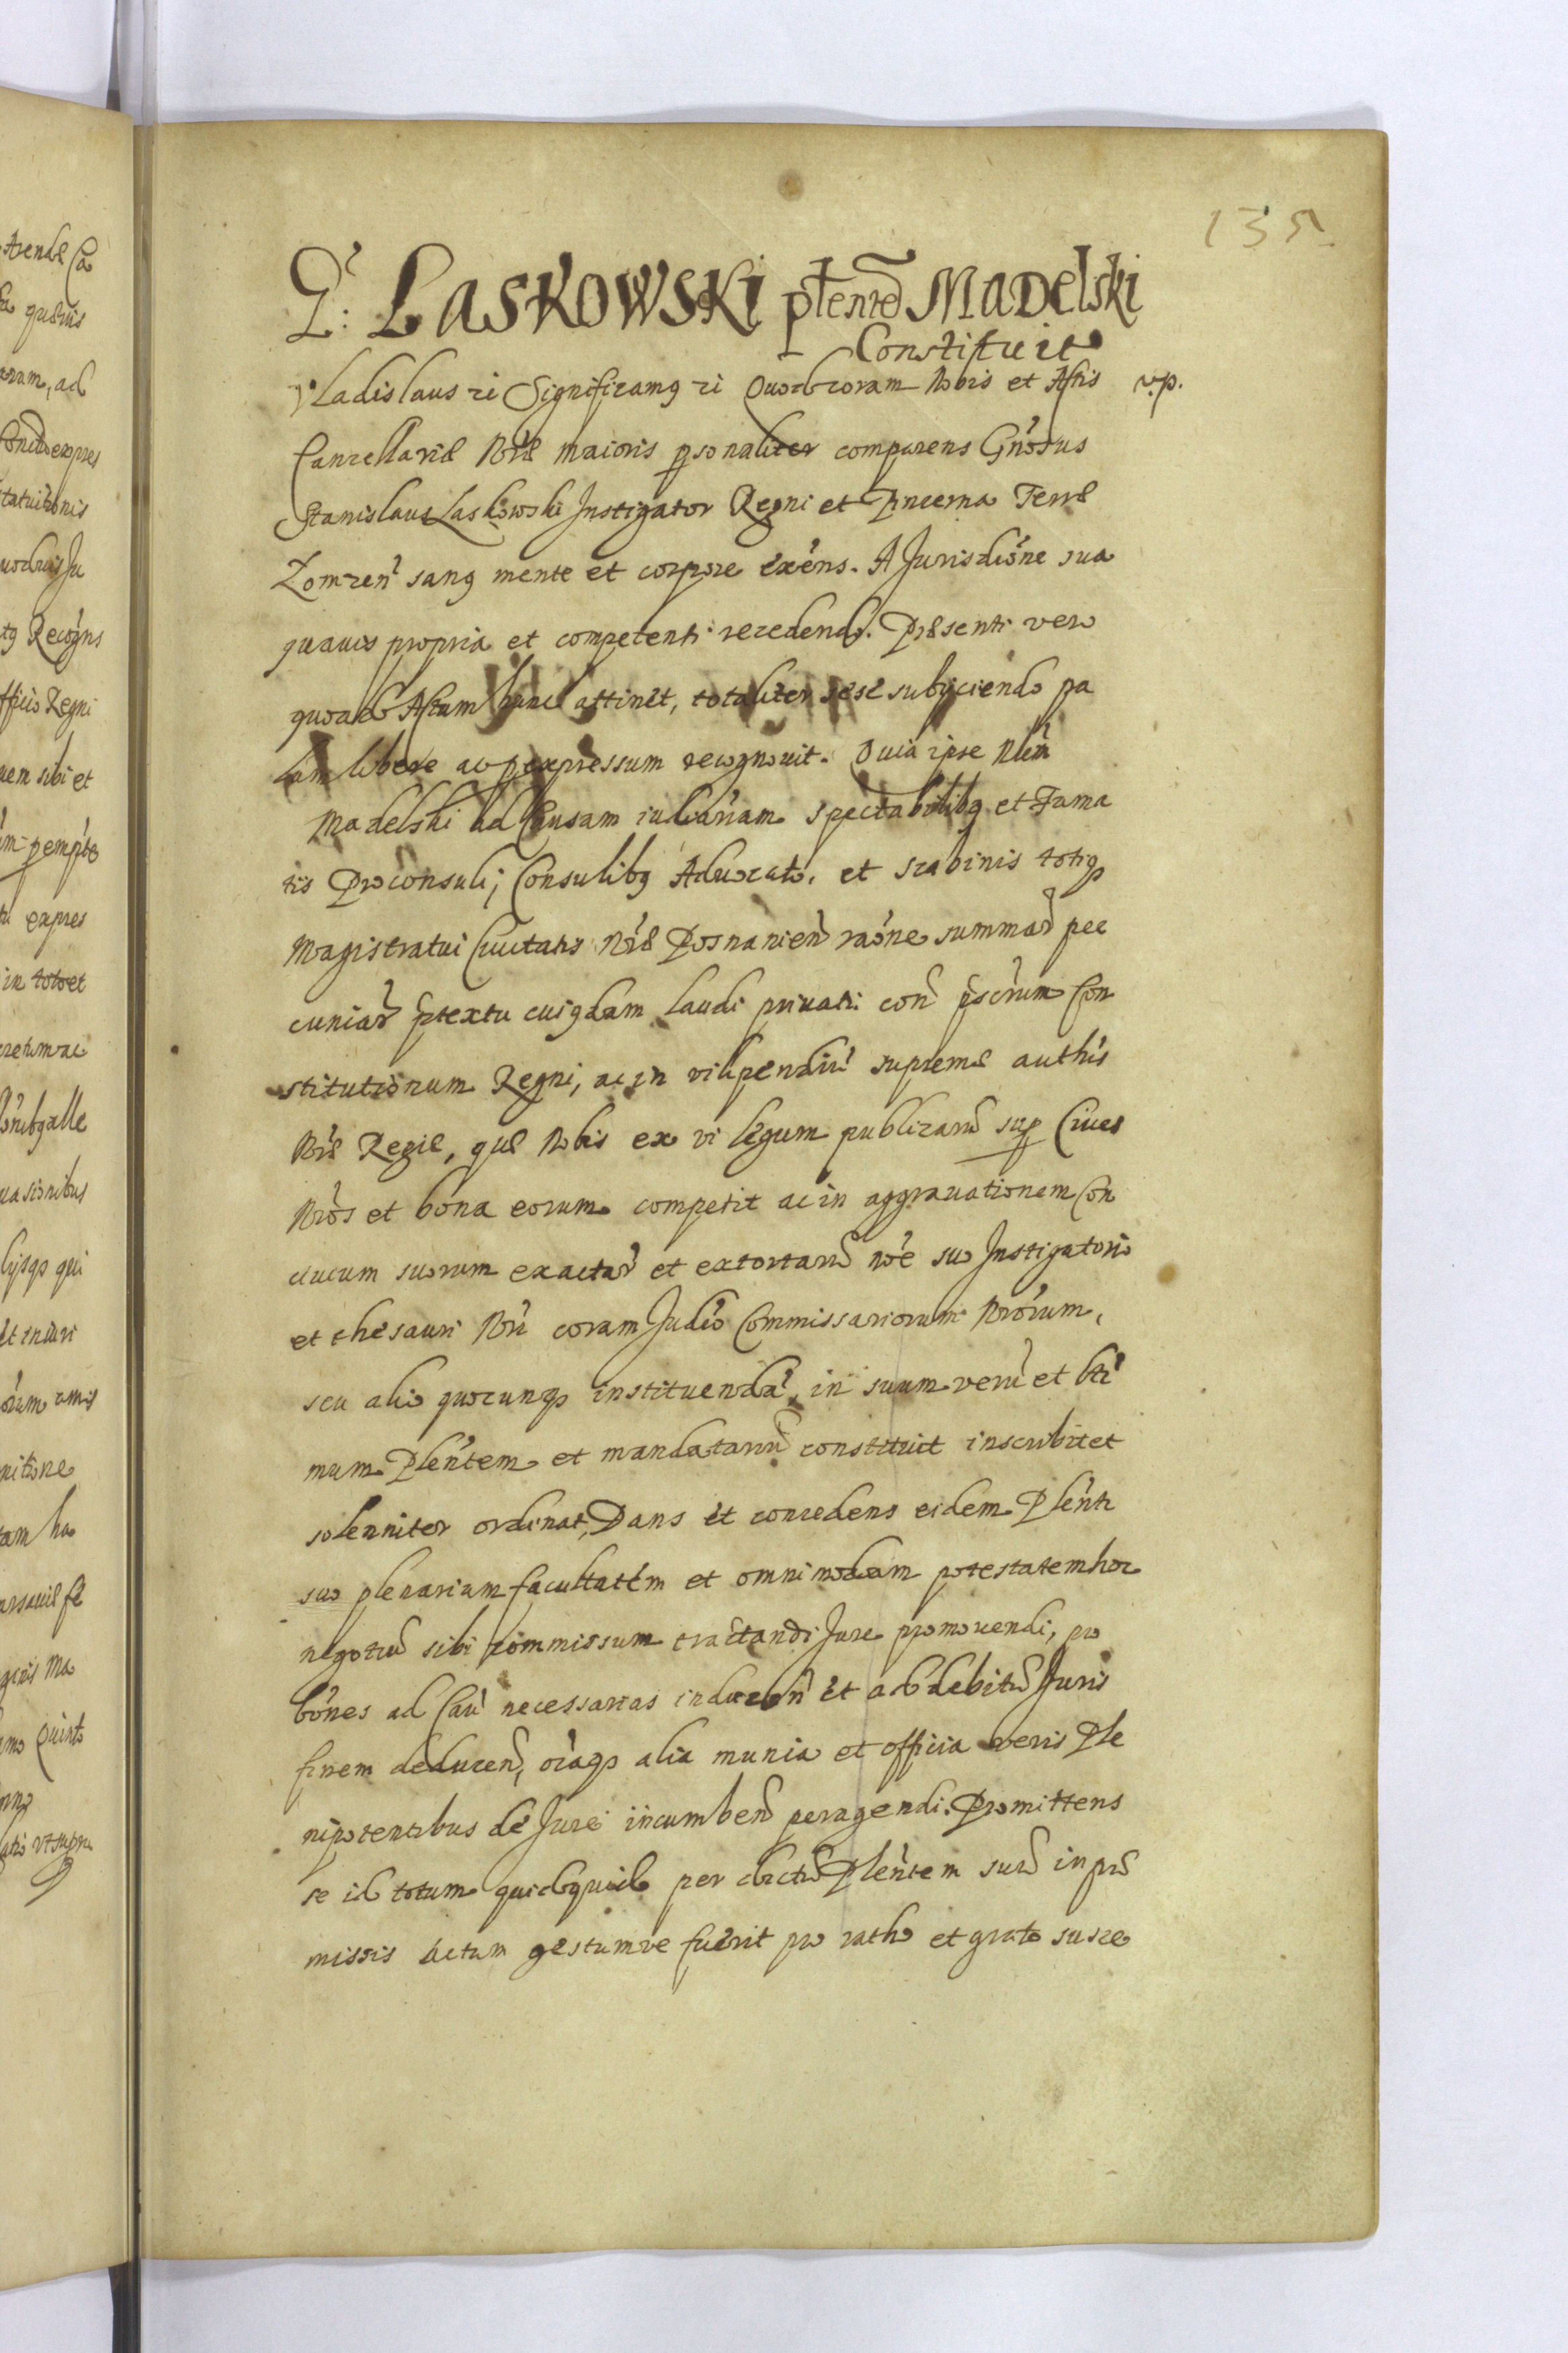 135
G: Laskowski pleñtẽ Madelski
Constituit
Vladislaus ꝛi Significamꝰ ꝛi Quod coram Nobis et Actis v.p.
Cancellariæ Nr̃æ maioris ꝑsonaliter comparens Gnõsus
Stanislaus Laskowski Instigator Regni et Pincerna Terræ
Lomzeñ sanꝰ mente et corpore exẽns. A Jurisdiõne sua
quauis propria et competenti recedendo. Præsenti vero
quoad Actum hunc attinet, totaliter sese subijciendo pa
lam libere ac ꝑ expressum recognouit. Quia ipse Nlẽm
Madelski ad Causam iudiariam spectabilibꝰ et Fama
tis Proconsuli, Consulibꝰ Aduocato, et scabinis totiqꝫ
Magistratui Ciuitatis Nr̃æ Posnanieñ raõne summaꝝ pec
cuniaꝝ p̃textu cuiꝰdam laudi priuati coñ p̃scrũm Con
stitutionum Regni, ac in vilipendiũ supremæ authis
Nr̃æ Regiæ, quæ Nobis ex vi legum publicarũ suꝑ Ciues
Nrõs et bona eorum competit ac in aggrauationem Con
ciuium suorum exactaꝝ et extortarũ nõe suo Instigatorio
et thesauri Nrĩ coram Judiõ Commissariorum Nrõrum,
seu alio quocunqꝫ instituendã, in suum verũ et ltĩ
mum Pleñtem et mandatariũ constituit inscribit et
solenniter ordinat, Dans et concedens eidem Pleñti
suo plenariam facultatem et omnimodam potestatem hoc
negotiũ sibi commissum tractandi Jure promouendi, pro
bõnes ad Caũ necessarias induceñ et ad debitũ Juris
finem deduceñ, oĩaqꝫ alia munia et officia veris Ple
nipotentibus de Jure incumbeñ peragendi. Promittens
se id totum quidquid per dictũ Pleñtem suũ in præ
missis actum gestumve fuerit pro ratho et grato susce